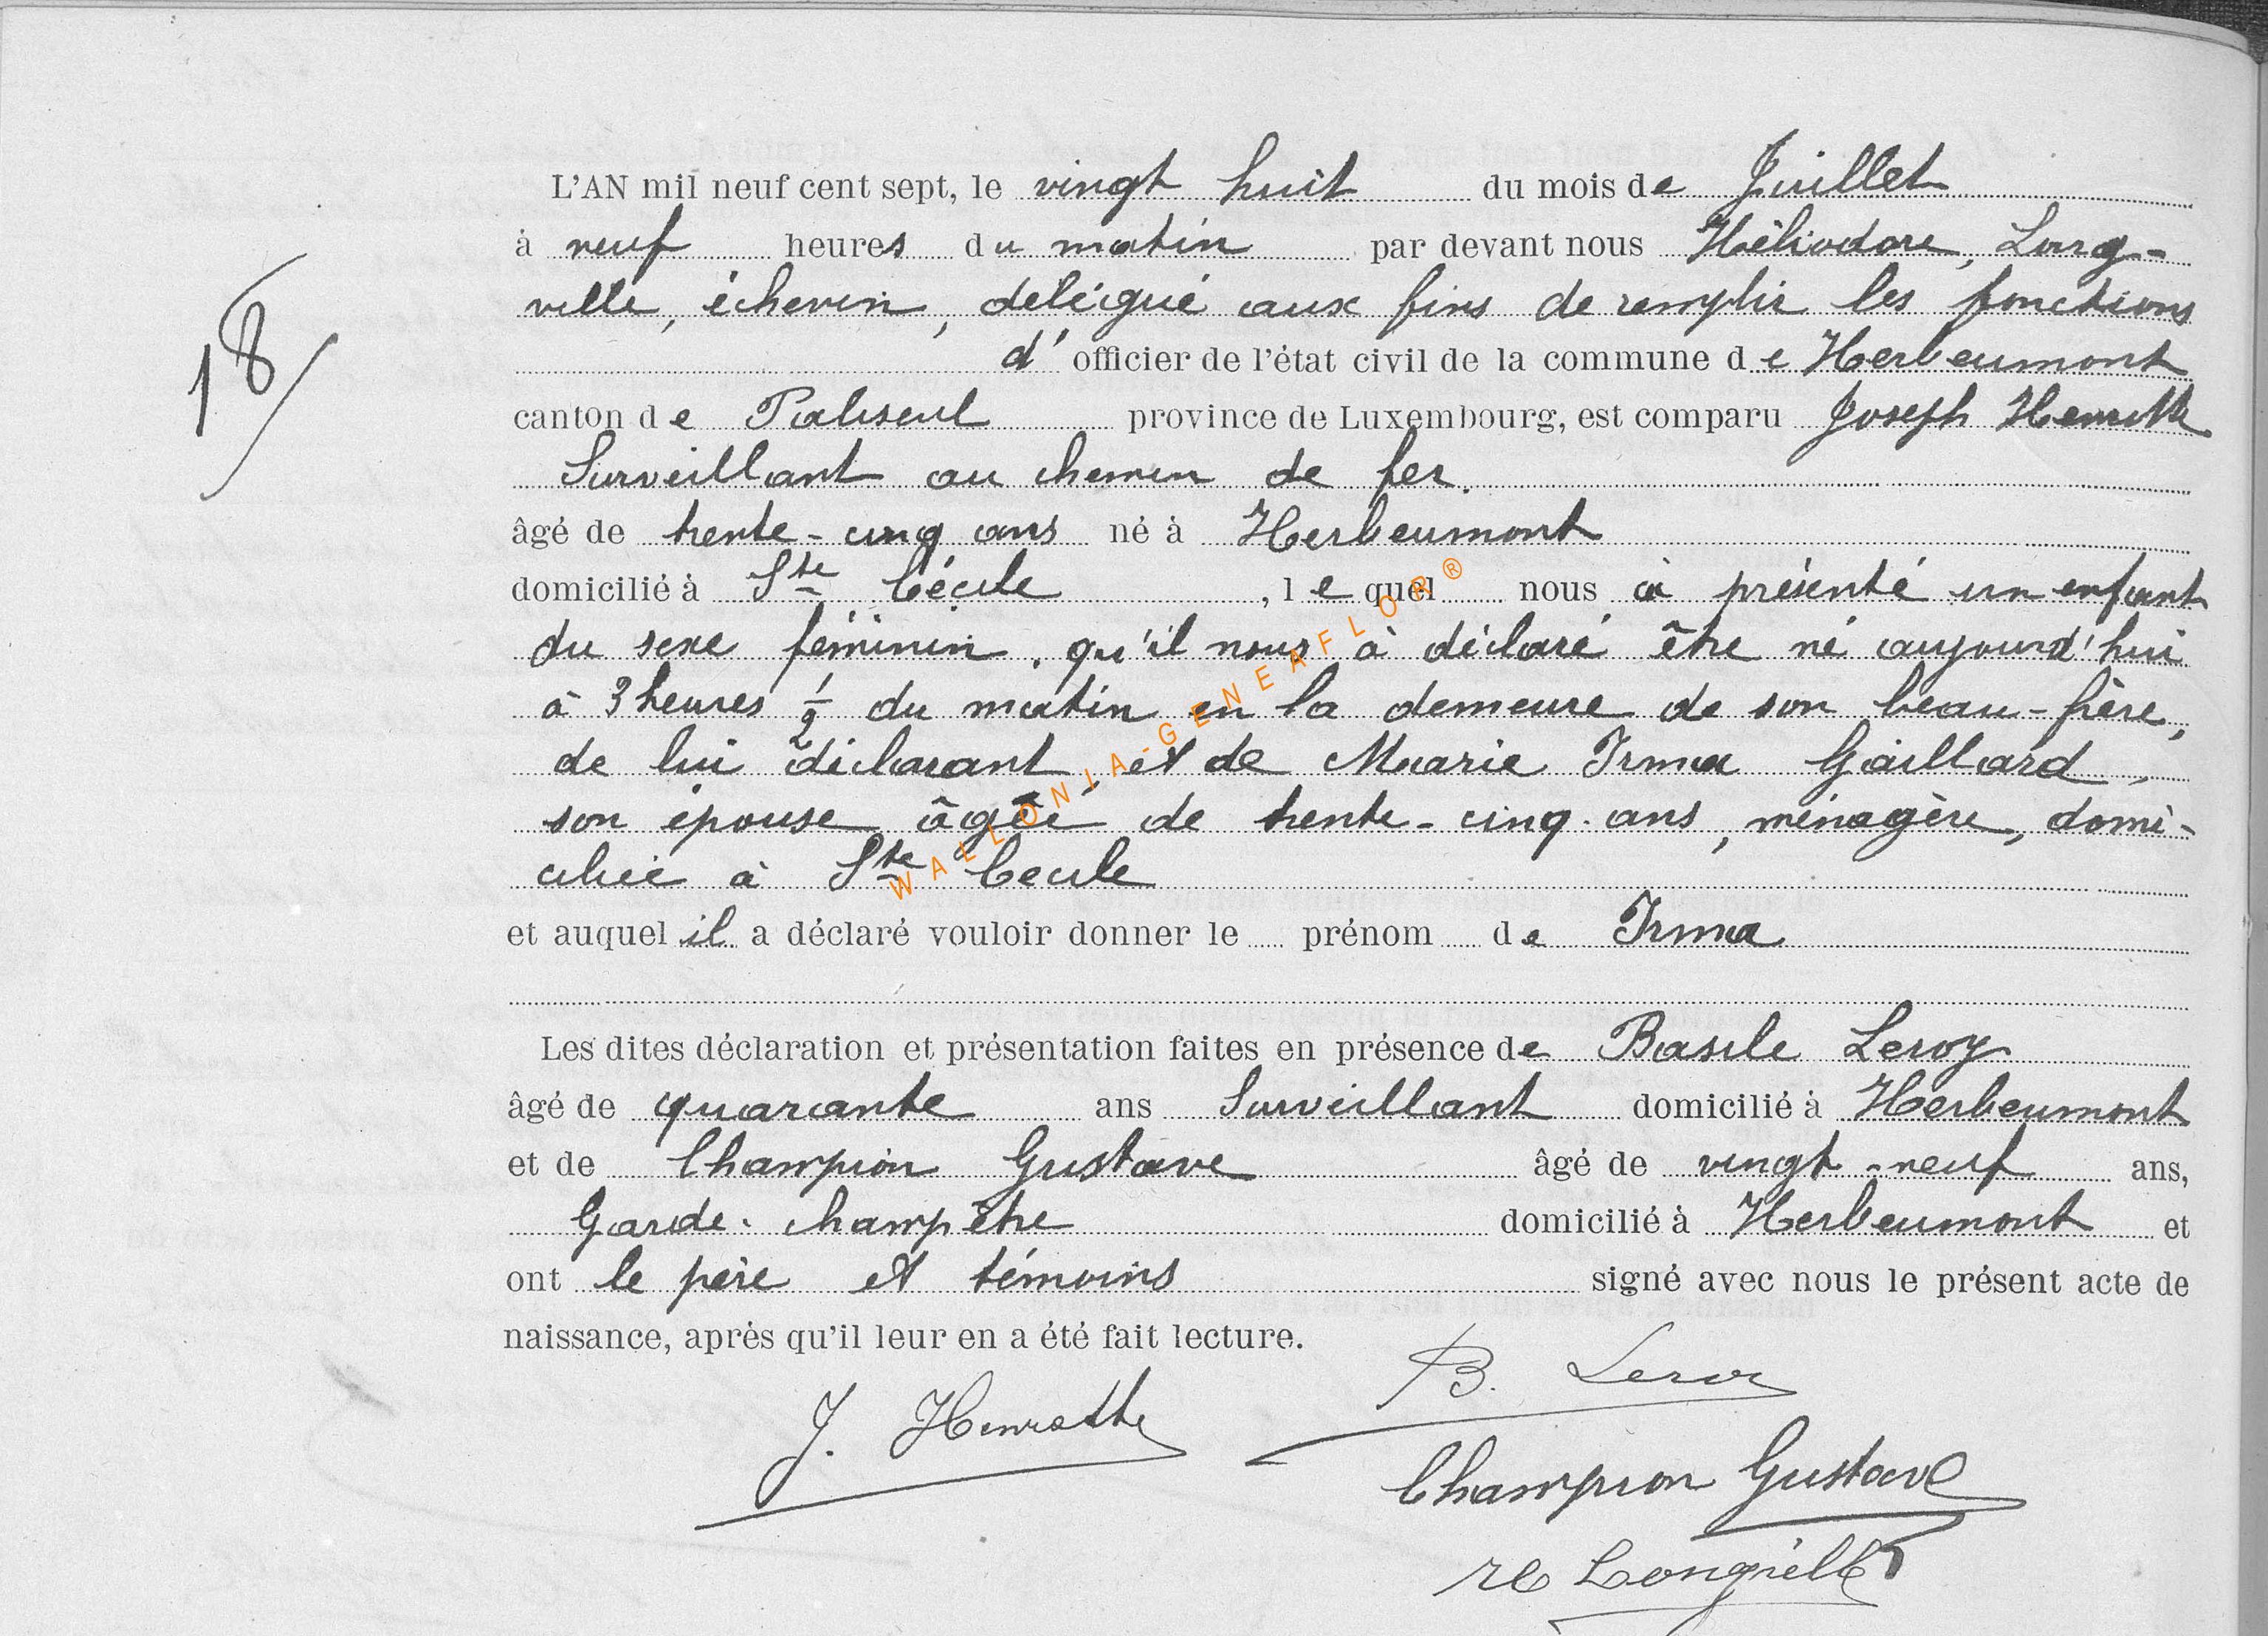 18/
L'AN mil neuf cent sept, le vingt huit du mois de Juillet
à neuf heures du matin par devant nous Héliodore, Long-
ville, échevin, délégué aux fins de remplir les fonctions
d' officier de l'état civil de la commune de Herbeumont
canton de Paliseul province de Luxembourg, est comparu Joseph Henrotte
Surveillant au chemin de fer.
âgé de trente-cinq ans né à Herbeumont
domicilié à Ste Cécile, lequel nous à présenté un enfant
du sexe féminin, qu'il nous à déclaré être né aujourd'hui
à 3 heures 1/2 du matin en la demeure de son beau-frère,
de lui déclarant, et de Marie Irma Gaillard,
son épouse, âgée de trente-cinq ans, ménagère, domi-
ciliée à Ste Cecile
et auquel il a déclaré vouloir donner le prénom de Irma
Les dites déclaration et présentation faites en présence de Basile Leroy
âgé de quarante ans Surveillant domicilié à Herbeumont
et de Champion Gustave âgé de vingt-neuf ans,
Garde-champêtre domicilié à Herbeumont et
ont le père et témoins signé avec nous le présent acte de
naissance, après qu'il leur en a été fait lecture.
B. Leroy
J. Henrotte
Champion Gustave
H Longville
WALLONIA-GENEAFLOR®